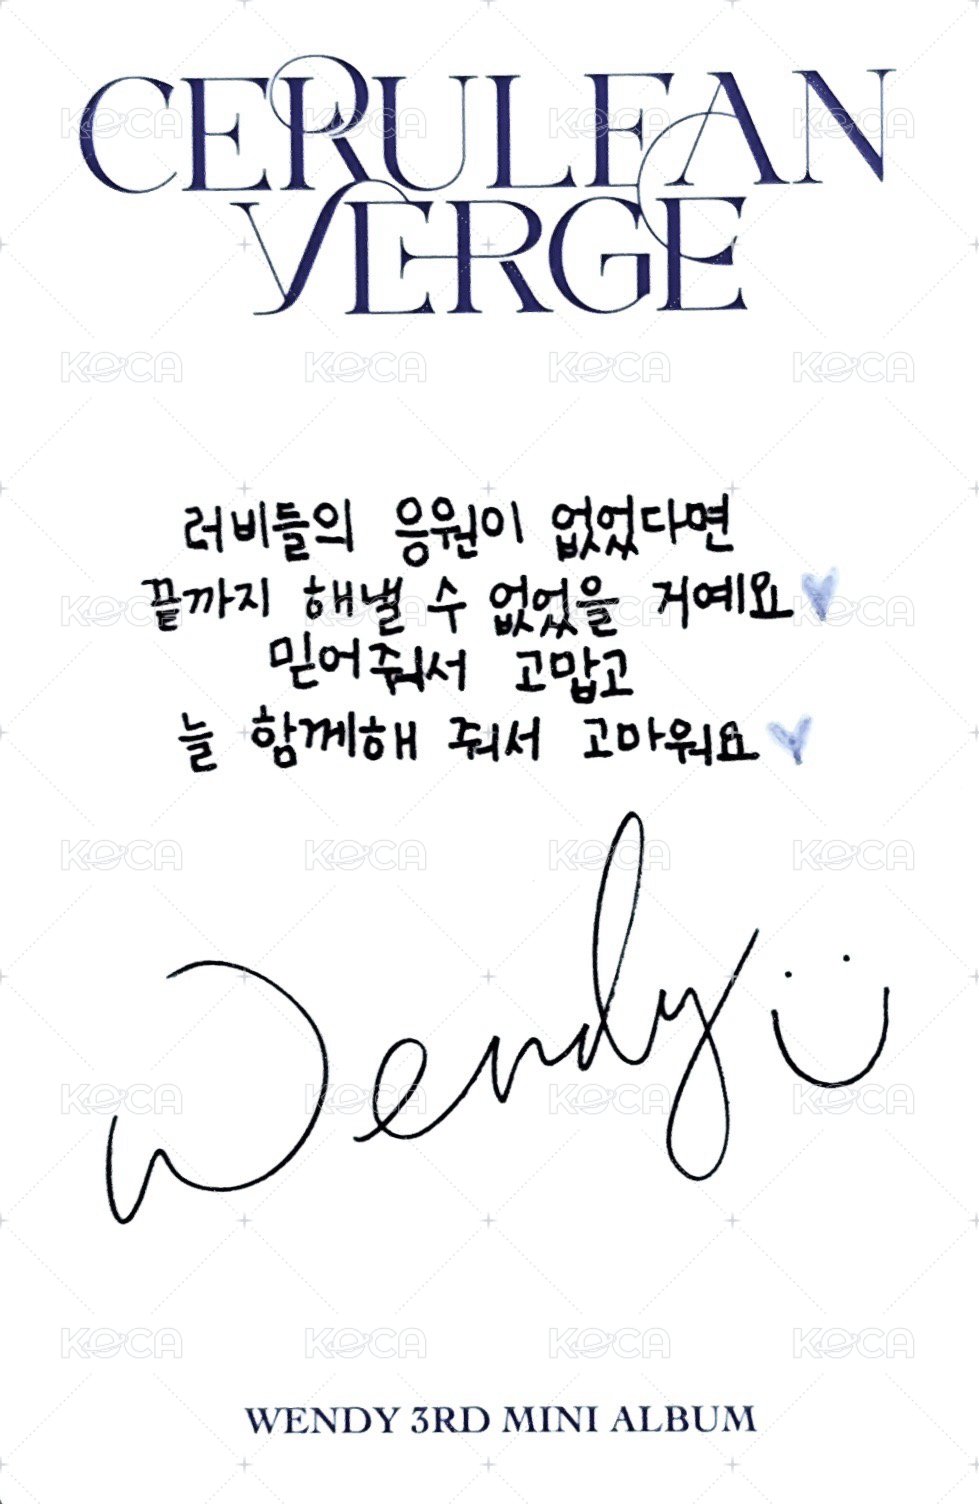 CERULEAN
VERGE
러비들의 응원이 없었다면
끝까지 해낼 수 없었을 거예요
믿어줘서 고맙고
늘 함께해 줘서 고마워요
Wendy
WENDY 3RD MINI ALBUM
KOCA